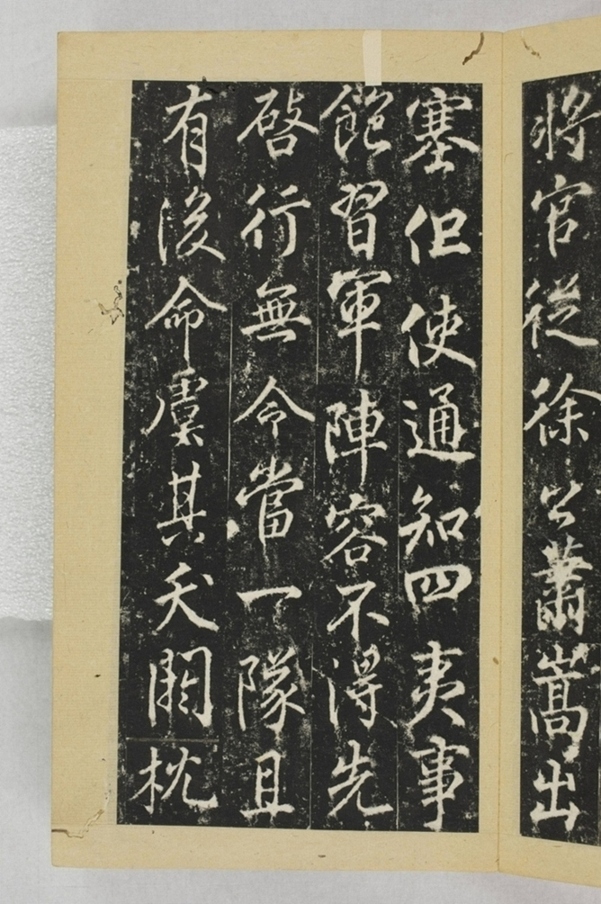 将官從徐公蕭嵩出
塞但使通知四夷事
飽習軍陣容不得先
啓行無令當一隊且
有後命虞其夭閼枕